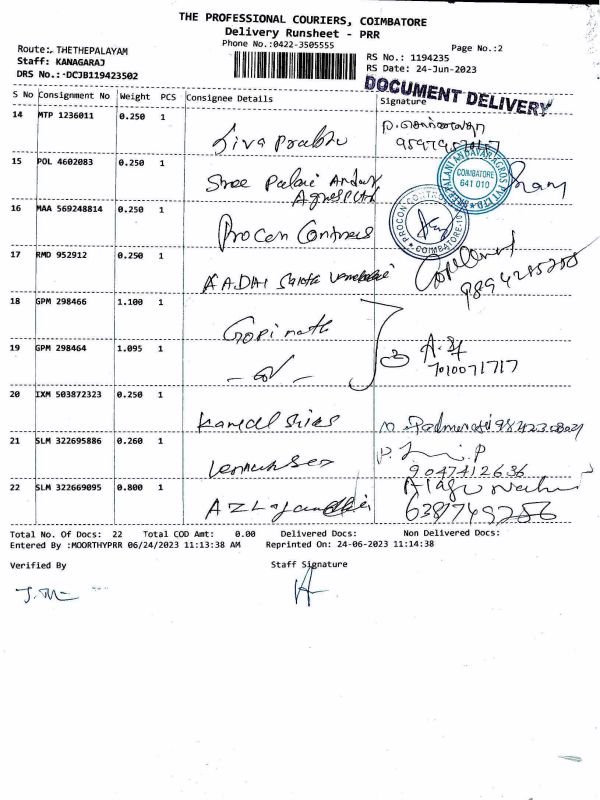 THE PROFESSIONAL COURIERS, COIMBATORE
Delivery Runsheet - PRR
Phone No.:0422-3505555
Page No.:2
Route: THETHEPALAYAM
Staff: KANAGARAJ
DRS No.: DCJB119423502
RS No.: 1194235
RS Date: 24-Jun-2023
DOCUMENT DELIVERY
S No Consignment No Weight PCS Consignee Details Signature
14 MTP 1236011 0.250 1 Siva Prabhu
15 POL 4602083 0.250 1 Shree Palai Andav
Agros P Ltd
COIMBATORE
641 010
16 MAA 569248814 0.250 1 Procon Controls
PROCON CONTRO
COIMBATORE-10
17 RMD 952912 0.250 1
9894285258
18 GPM 298466 1.100 1 Gopinath
19 GPM 298464 1.095 1
7010071717
20 IXM 503872323 0.250 1
21 SLM 322695886 0.260 1
9047412636
22 SLM 322669095 0.800 1
6381749256
Total No. Of Docs: 22 Total COD Amt: 0.00 Delivered Docs: Non Delivered Docs:
Entered By :MOORTHYPRR 06/24/2023 11:13:38 AM Reprinted On: 24-06-2023 11:14:38
Verified By Staff Signature